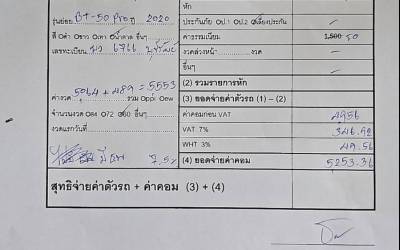 หัก
รุ่นย่อย BT-50 Pro ปี 2020
ประกันภัย O ป.1 O ป.2 O เลี่ยงประกัน
สี O ดำ O ขาว O เทา O น้ำตาล อื่นๆ
ค่าธรรมเนียม 1,500 50
เลขทะเบียน
งวดล่วงหน้า งวด
อื่นๆ
ค่างวด 5064 + 489 = 5553
รวม Oppi Oew
(2) รวมรายการหัก
(3) ยอดจ่ายค่าตัวรถ (1) – (2)
จำนวนงวด O84 O72 O60 อื่นๆ
ค่าคอมก่อน VAT 4956
งวดแรกวันที่
VAT 7% 346.92
WHT 3% 49.56
7.5%
(4) ยอดจ่ายค่าคอม 5253.36
สุทธิจ่ายค่าตัวรถ + ค่าคอม (3) + (4)